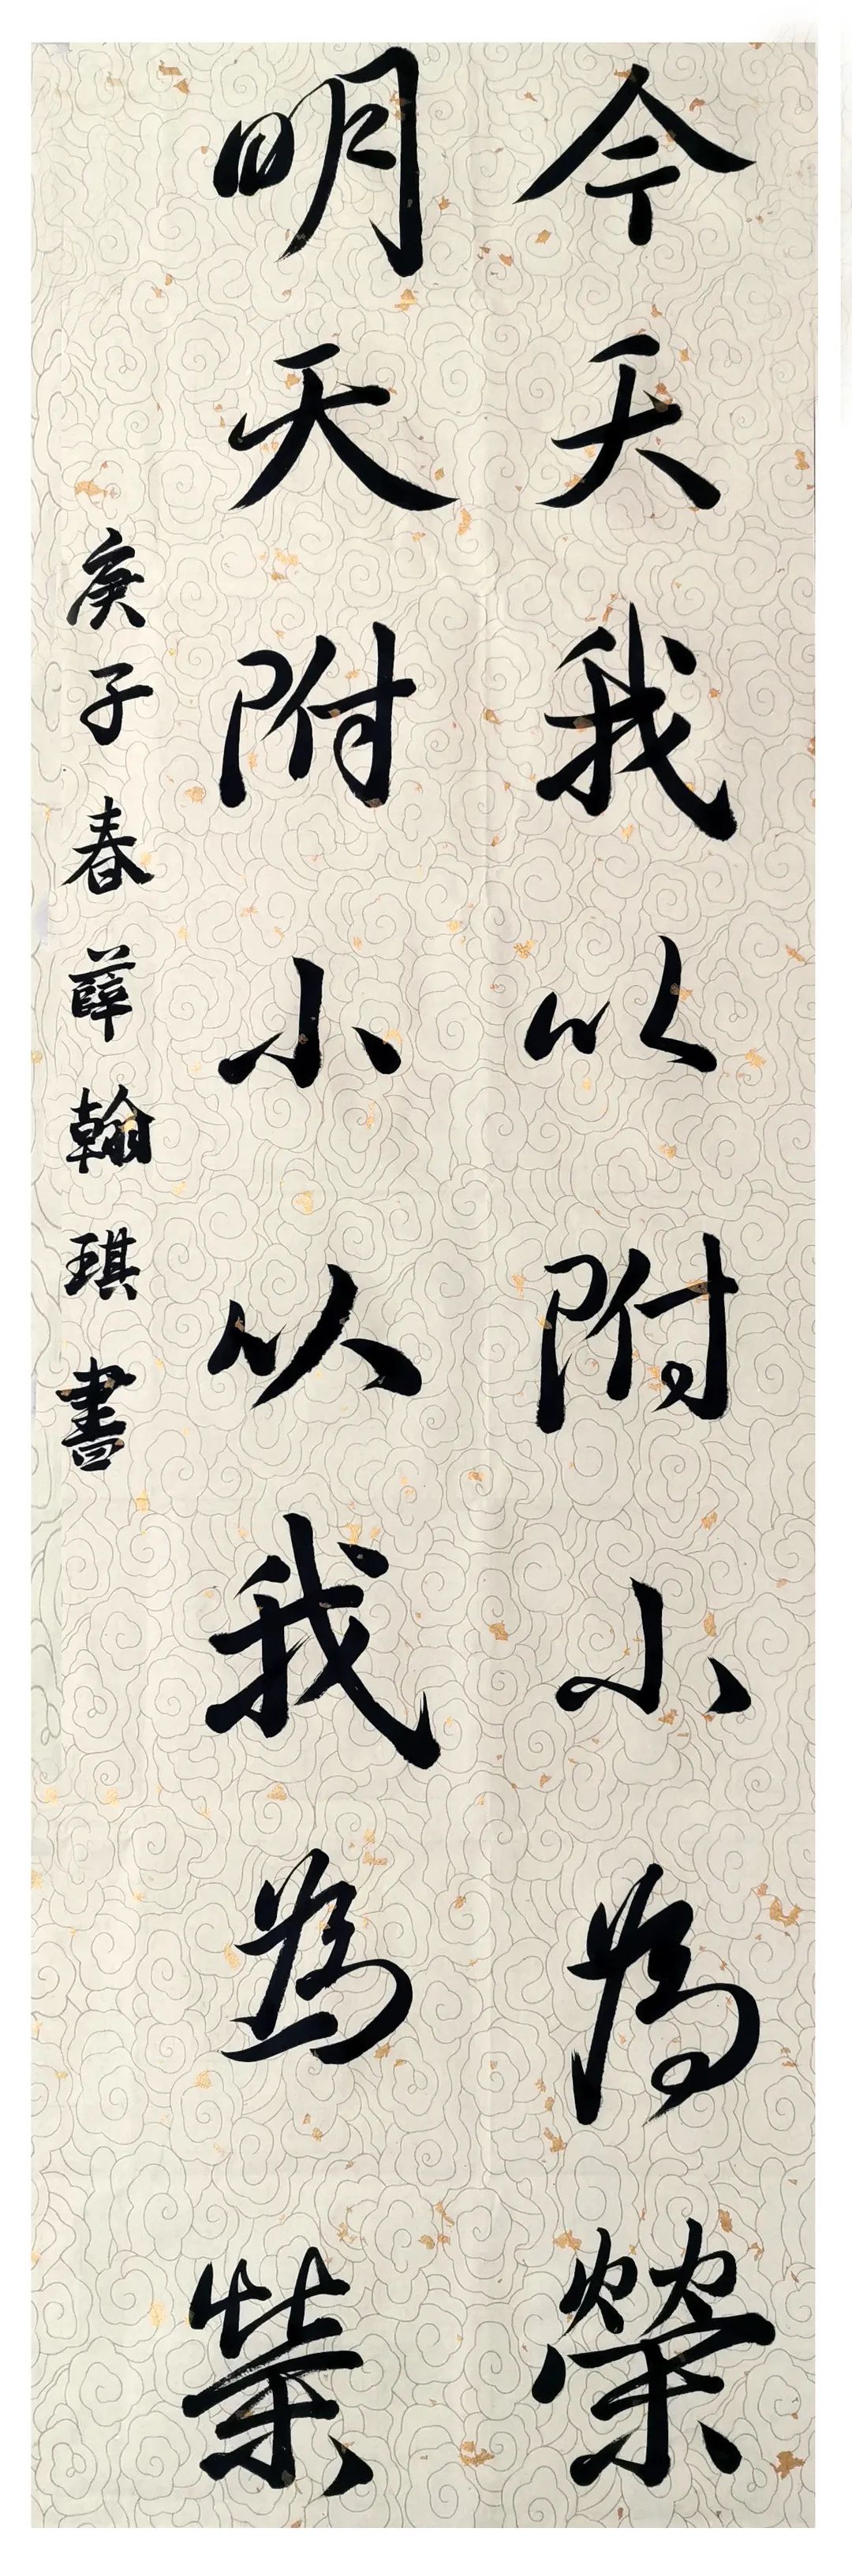 今天我以附小為榮
明天附小以我為榮
庚子春薛翰琪書